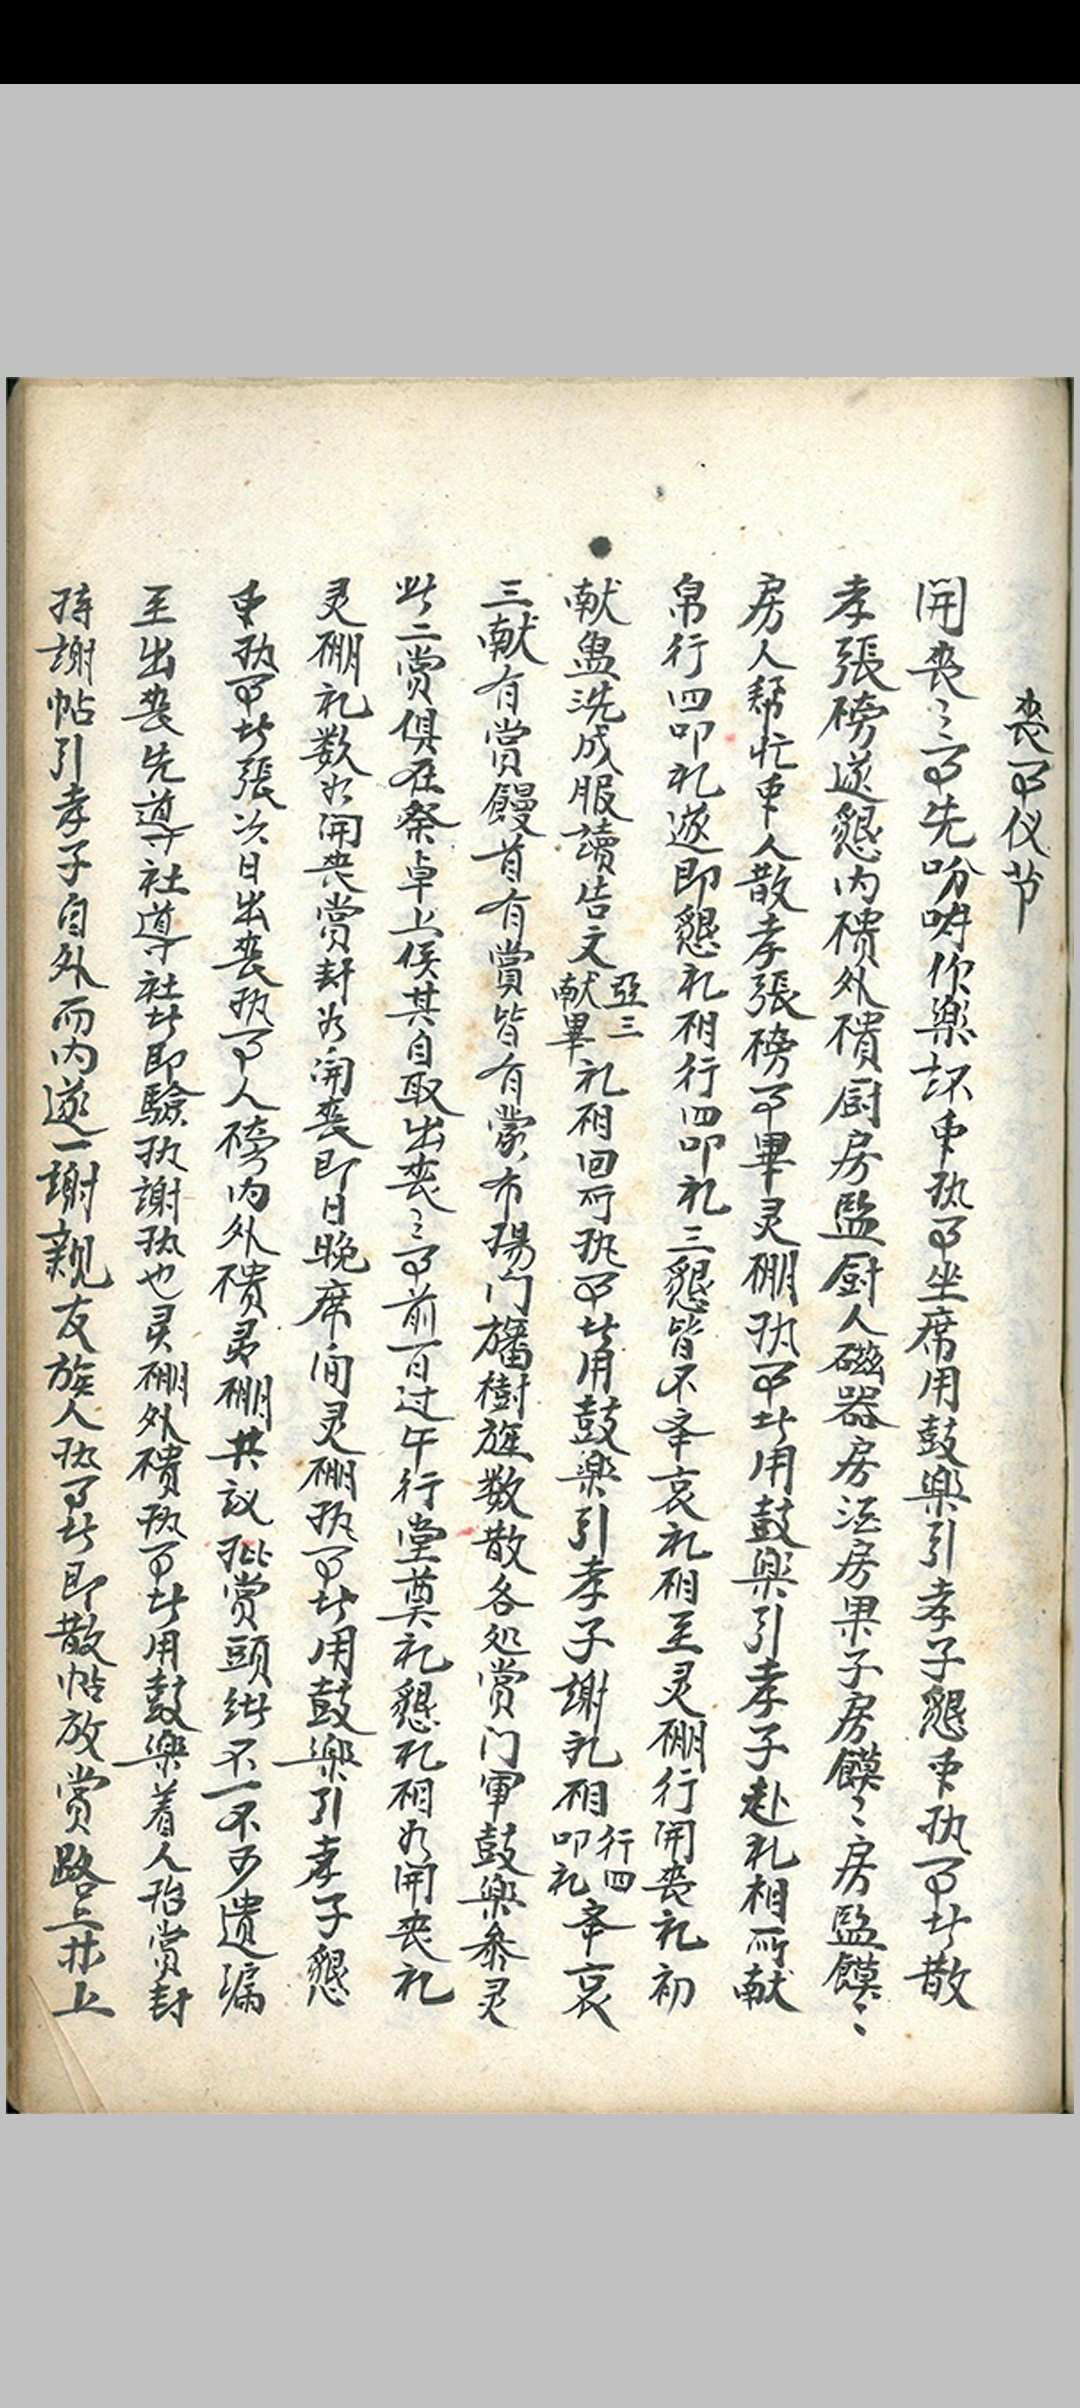 丧事仪节
開丧之事先吩咐作樂坯中执事坐席用鼓樂引孝子懇中执事者散
孝張榜遂懇内樻外樻厨房監厨人磁器房酒房果子房饃〻房監饃〻
房人帮忙中人散孝張榜事畢灵棚执事者用鼓樂引孝子赴礼相所献
帛行四叩礼遂即懇礼相行四叩礼三懇皆不举哀礼相至灵棚行開丧礼初
献盥洗成服讀告文亞三献畢礼相回所执事者用鼓樂引孝子謝礼相行四叩礼举哀
三献有赏饅首有賞皆有蒙布瑒门旛樹旌数散各処赏门軍鼓樂叅灵
此二赏俱在祭卓上俟其自取出丧之事前一日过午行堂奠礼懇礼相如開丧礼
灵棚礼数如開丧赏封如開丧即日晚席间灵棚执事者用鼓樂引孝子懇
中执事者張次日出丧执事人榜内外樻灵棚共议批赏頭绪不一不可遗漏
至出丧先導社導社者即驗执謝执也灵棚外樻执事者用鼓樂着人拾赏封
持謝帖引孝子自外而内遂一謝親友族人执事者即散帖放赏路上井上